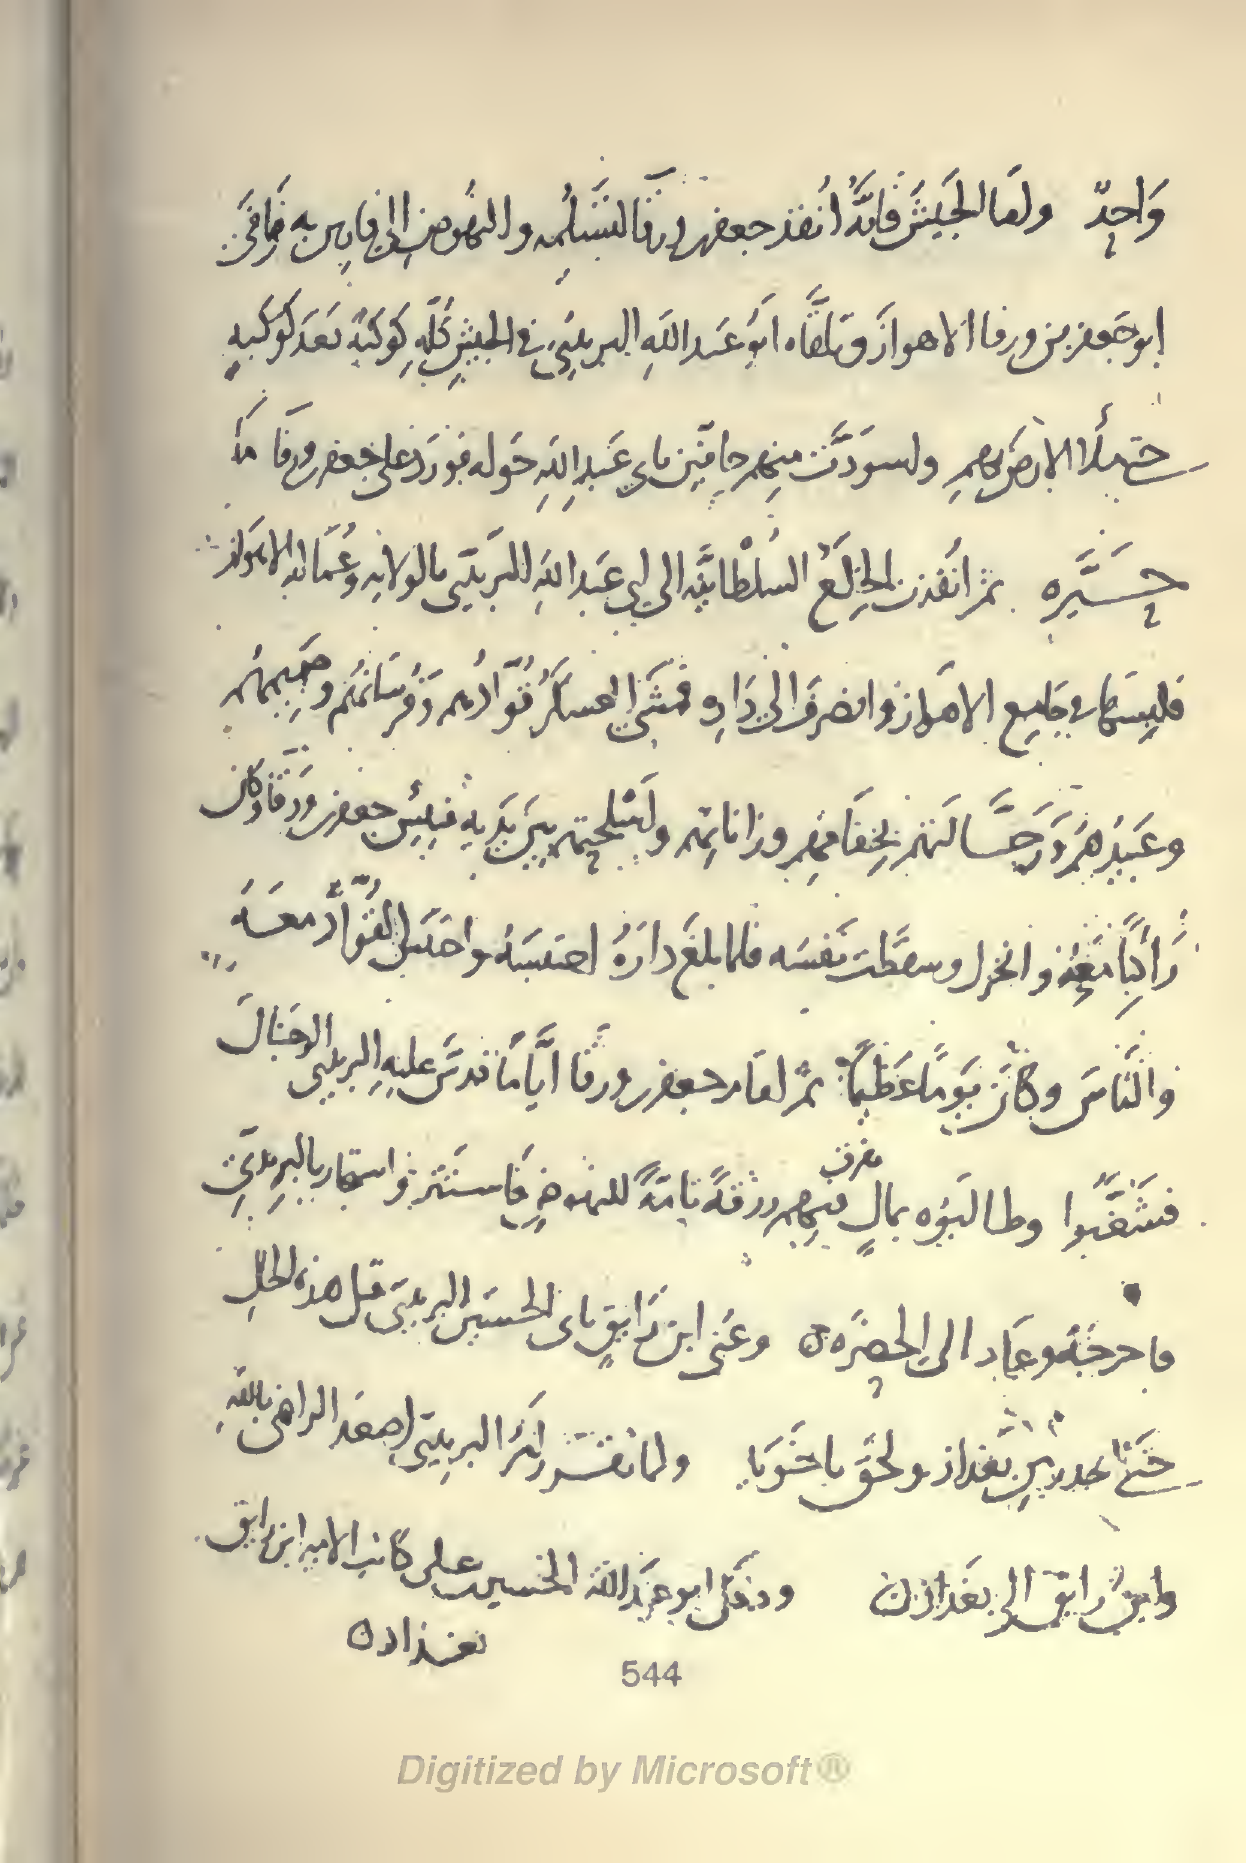 وَاحِدٌ ولما الجَيْشَ فانَّهُ أنفذ جعفر بن ورقا لتسلمه والنهوض الى فارس به فوافى
ابو جعفر بن ورقا الاهواز وتلقاه ابو عبد اللهِ البريدي في الجيش كلّه كوكبةً بعد كوكبه
حتى ملأ الارض بهم ولسودَّت منهم حافين بابي عَبدِ اللهِ حوله فورد على جعفر بن ورقا ما
حيَّره ثم انفذت الخِلَعُ السُلطانيَّه الى ابي عَبد الله البَريدي بالولايه وعُمَاله الاهواز
فلبسَها في جامِع الاهواز وانصرف الى دَارِه فمشى العسكَرُ قُوّادُهم وَفُرسَانُهُم وجميعهم
وعَبيدُهُم ورَجَّالتهم بخِفَافِهِم وراناتِهم ولَسْلحِتِهم بين يَدَيهِ فيئس جعفر بن ورقا وكان
رَاكبًا مَعَهُ وانخزل وسقطت نفسَه فلما بلغَ دارَهُ احتبسَهُ واحتبسَ القُوّادُ معَهُ
والنَّاسَ وكان يَومًا عَظِيمًا ثم اقام جعفر بن ورقا أيَّامًا فدسَّ عليه البريدي الرجَالَ
فشغَّبوا وطالبَوُه بمالٍ يفرق فيهم رزقةً تامَّةً للنهوض فَاستَتَر واستجار بالبريديّ
فاخرجَهُ وعَادَ الى الحضرَه ه وعُني ابن رَايق بابي الحسَين البريديّ قبل هذه الحال
حَتّى انحدر من بغداذ ولحقَ باخَويه ولما تقرر امر البريديّ اصعَد الراضي باللهِ
وابن رَايق الى بغداذ ه ودخل ابو عبد الله الحسين علي كاتب الامير ابن رايق
بغداد ه
544
Digitized by Microsoft®